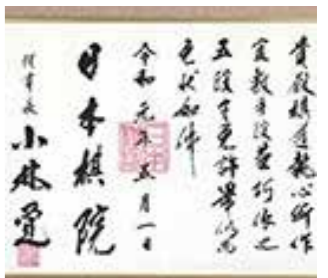 貴殿棋道執心所作
宜敷手段依之
五段令免許畢仍而
免状如件
令和元年五月一日
日本棋院
理事長 小林覚